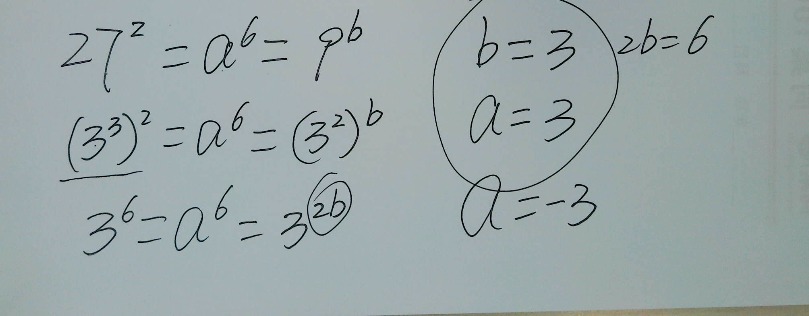 27² = a⁶ = 9ᵇ
(3³)² = a⁶ = (3²)ᵇ
3⁶ = a⁶ = 3²ᵇ
b = 3 2b = 6
a = 3
a = -3